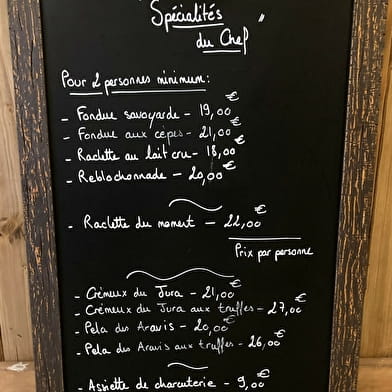 Spécialités
du Chef
Pour 2 personnes minimum :
- Fondue savoyarde - 19,00€
- Fondue aux cèpes - 21,00€
- Raclette au lait cru - 18,00€
- Reblochonnade - 20,00€
- Raclette du moment - 22,00€
Prix par personne
- Crémeux du Jura - 21,00€
- Crémeux du Jura aux truffes - 27,00€
- Pela des Aravis - 20,00€
- Pela des Aravis aux truffes - 26,00€
- Assiette de charcuterie - 9,00€